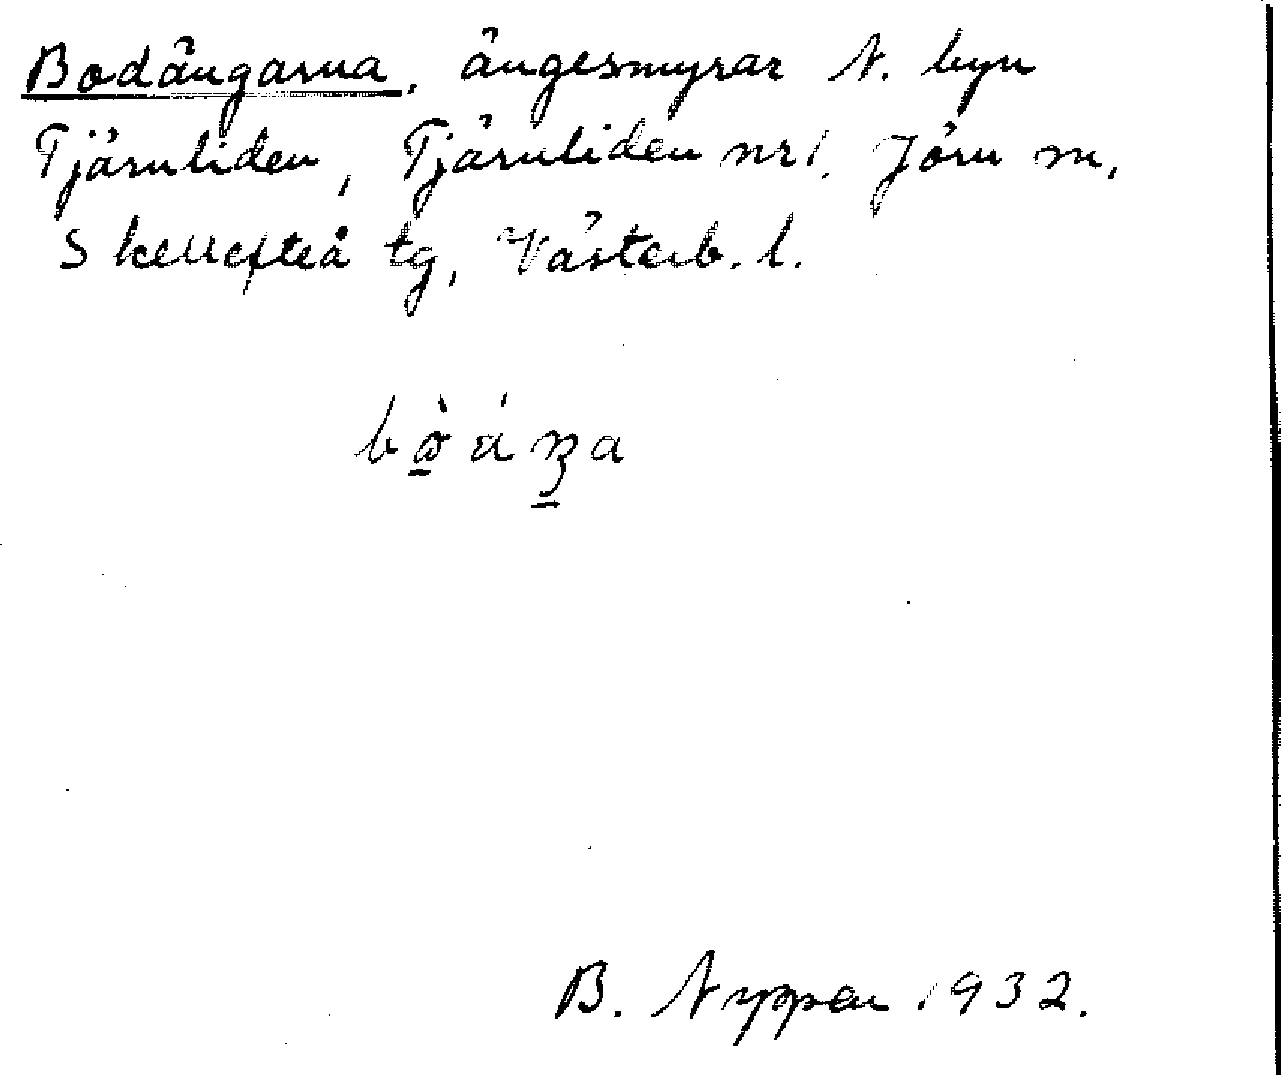 Bodängarna, ängesmyrar N. byn
Tjärnliden, Tjärnliden nr 1, Jörn sn,
Skellefteå tg, Västerb. l.
B. Nyppen 1932.